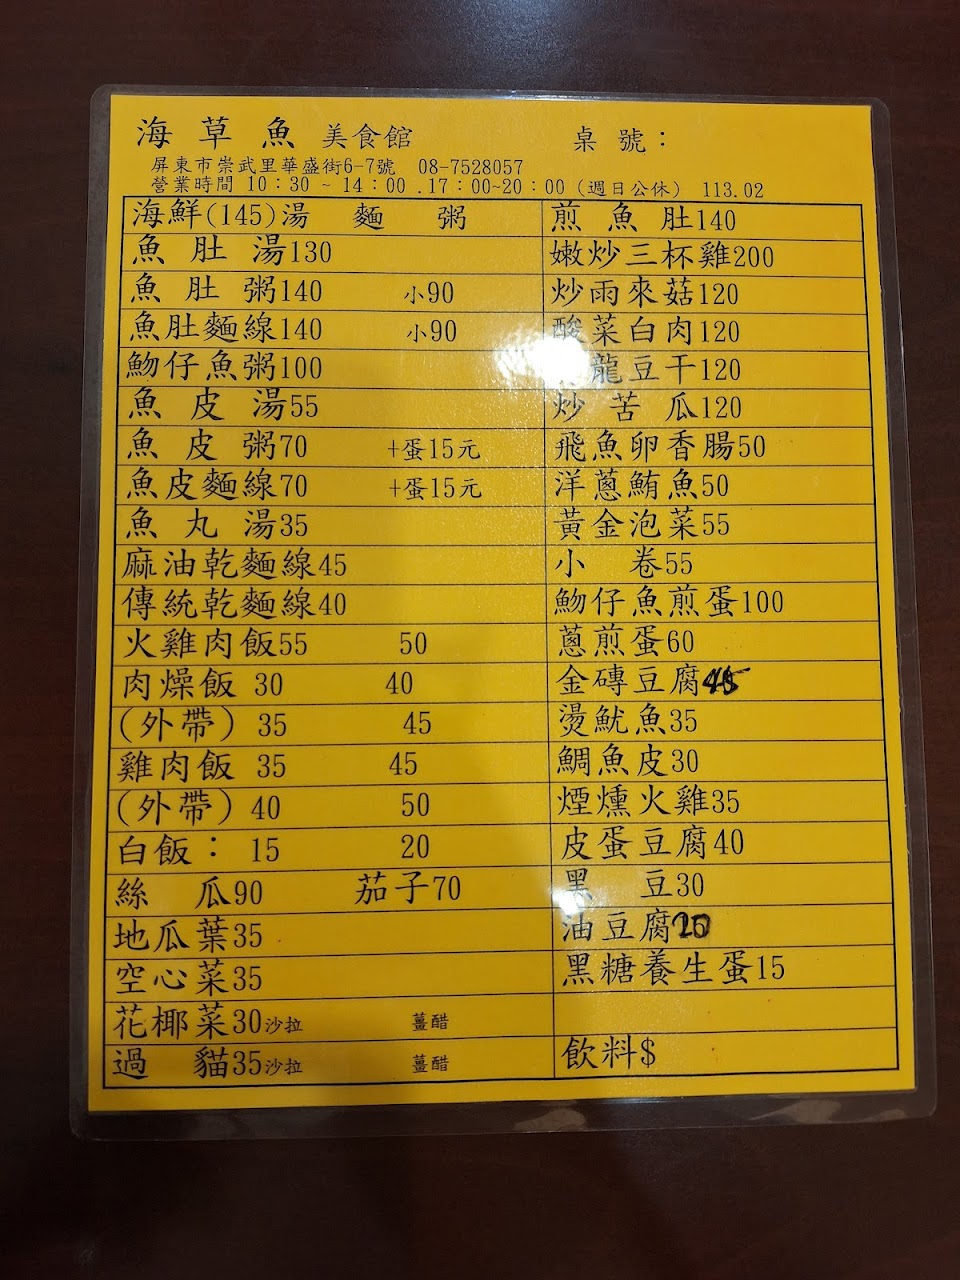 海草魚 美食館 桌號：
屏東市崇武里華盛街6-7號 08-7528057
營業時間 10：30 ~ 14：00 .17：00~20：00 (週日公休) 113.02
海鮮(145)湯 麵 粥
魚肚湯130
魚肚粥140 小90
魚肚麵線140 小90
魩仔魚粥100
魚皮湯55
魚皮粥70 +蛋15元
魚皮麵線70 +蛋15元
魚丸湯35
麻油乾麵線45
傳統乾麵線40
火雞肉飯55 50
肉燥飯 30 40
(外帶) 35 45
雞肉飯 35 45
(外帶) 40 50
白飯： 15 20
絲瓜90 茄子70
地瓜葉35
空心菜35
花椰菜30沙拉 薑醋
過貓35沙拉 薑醋
煎魚肚140
嫩炒三杯雞200
炒雨來菇120
酸菜白肉120
龍豆干120
炒苦瓜120
飛魚卵香腸50
洋蔥鮪魚50
黃金泡菜55
小卷55
魩仔魚煎蛋100
蔥煎蛋60
金磚豆腐45
燙魷魚35
鯛魚皮30
煙燻火雞35
皮蛋豆腐40
黑豆30
油豆腐20
黑糖養生蛋15
飲料$